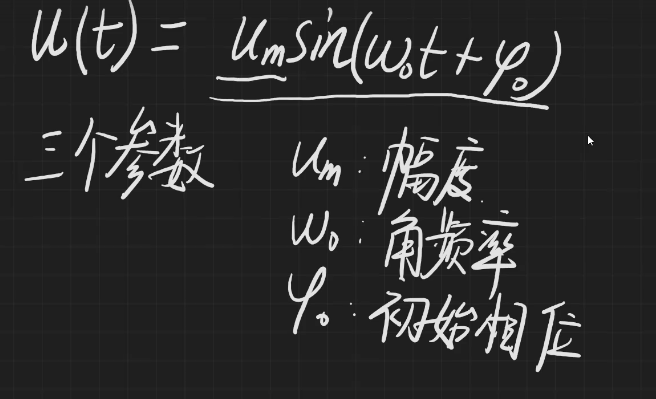 u(t) = u_m sin(ω₀t + φ₀)
三个参数 u_m : 幅度
ω₀ : 角频率
φ₀ : 初始相位